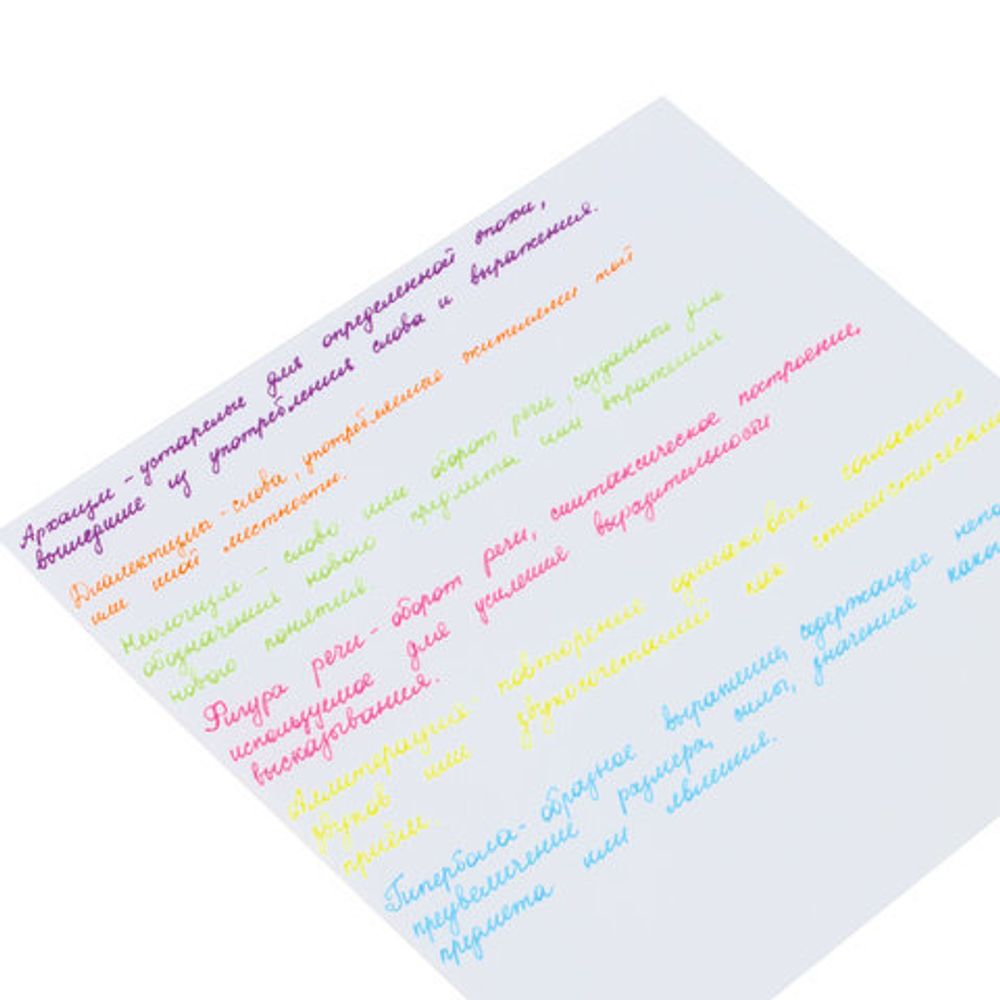 Архаизм - устарелые для определенной эпохи,
вышедшие из употребления слова и выражения.
Диалектизмы - слова, употребляемые жителями той
или иной местности.
Неологизм - слово или оборот речи, созданный для
обозначения нового предмета или выражения
нового понятия
Фигура речи - оборот речи, синтаксическое построение,
используемое для усиления выразительности
высказывания.
Аллитерация - повторение одинаковых согласных
звуков или звукосочетаний как стилистический
приём.
Гипербола - образное выражение, содержащее непо
преувеличение размера, силы, значения како
предмета или явления.